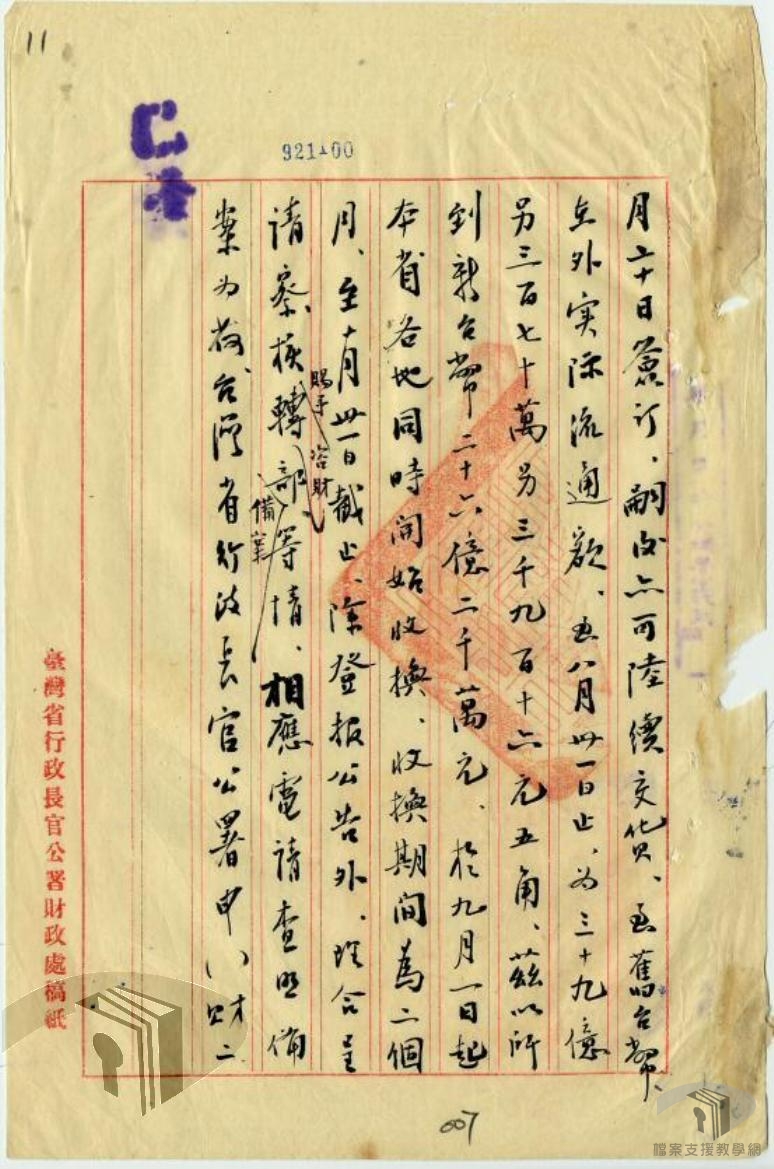 11
921100
月二十日簽订、嗣後亦可陸續交貨、至舊台幣
在外实际流通额、至八月卅一日止、为三十九億
另三百七十萬另三千九百十六元五角、兹以所
到新台幣二十六億二千萬元、於九月一日起
本省各地同時開始收换、收换期间為二個
月、至十月卅一日截止、除登报公告外、理合呈
請察核賜予咨財
轉部備案等情、相應電請查照備
案为荷台湾省行政長官公署申
财二
臺灣省行政長官公署財政處稿紙
007
檔案支援教學網